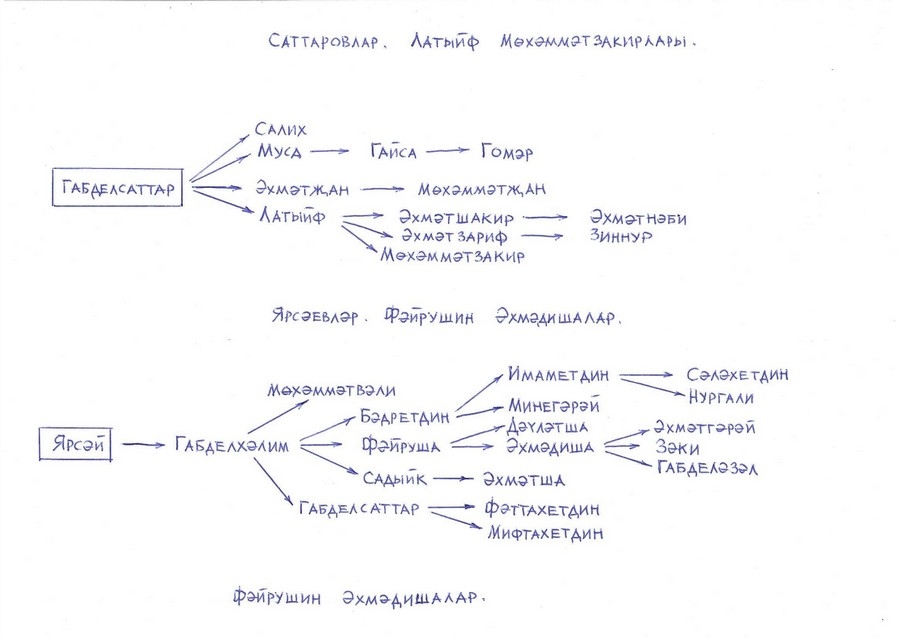 Саттаровлар. Латыйф Мөхәммәтзакирлары.
Салих
Муса Гайса Гомәр
Габделсаттар Әхмәтҗан Мөхәммәтҗан
Латыйф Әхмәтшакир Әхмәтнәби
Әхмәтзариф Зиннур
Мөхәммәтзакир
Ярсәевләр. Фәйрушин Әхмәдишалар.
Имаметдин Сәләхетдин
Мөхәммәтвәли Нургали
Бәдретдин Минегәрәй
Дәүләтша Әхмәтгәрәй
Ярсәй Габделхәлим Фәйруша Әхмәдиша Зәки
Габделәзәл
Садыйк Әхмәтша
Габделсаттар Фәттахетдин
Мифтахетдин
Фәйрушин Әхмәдишалар.